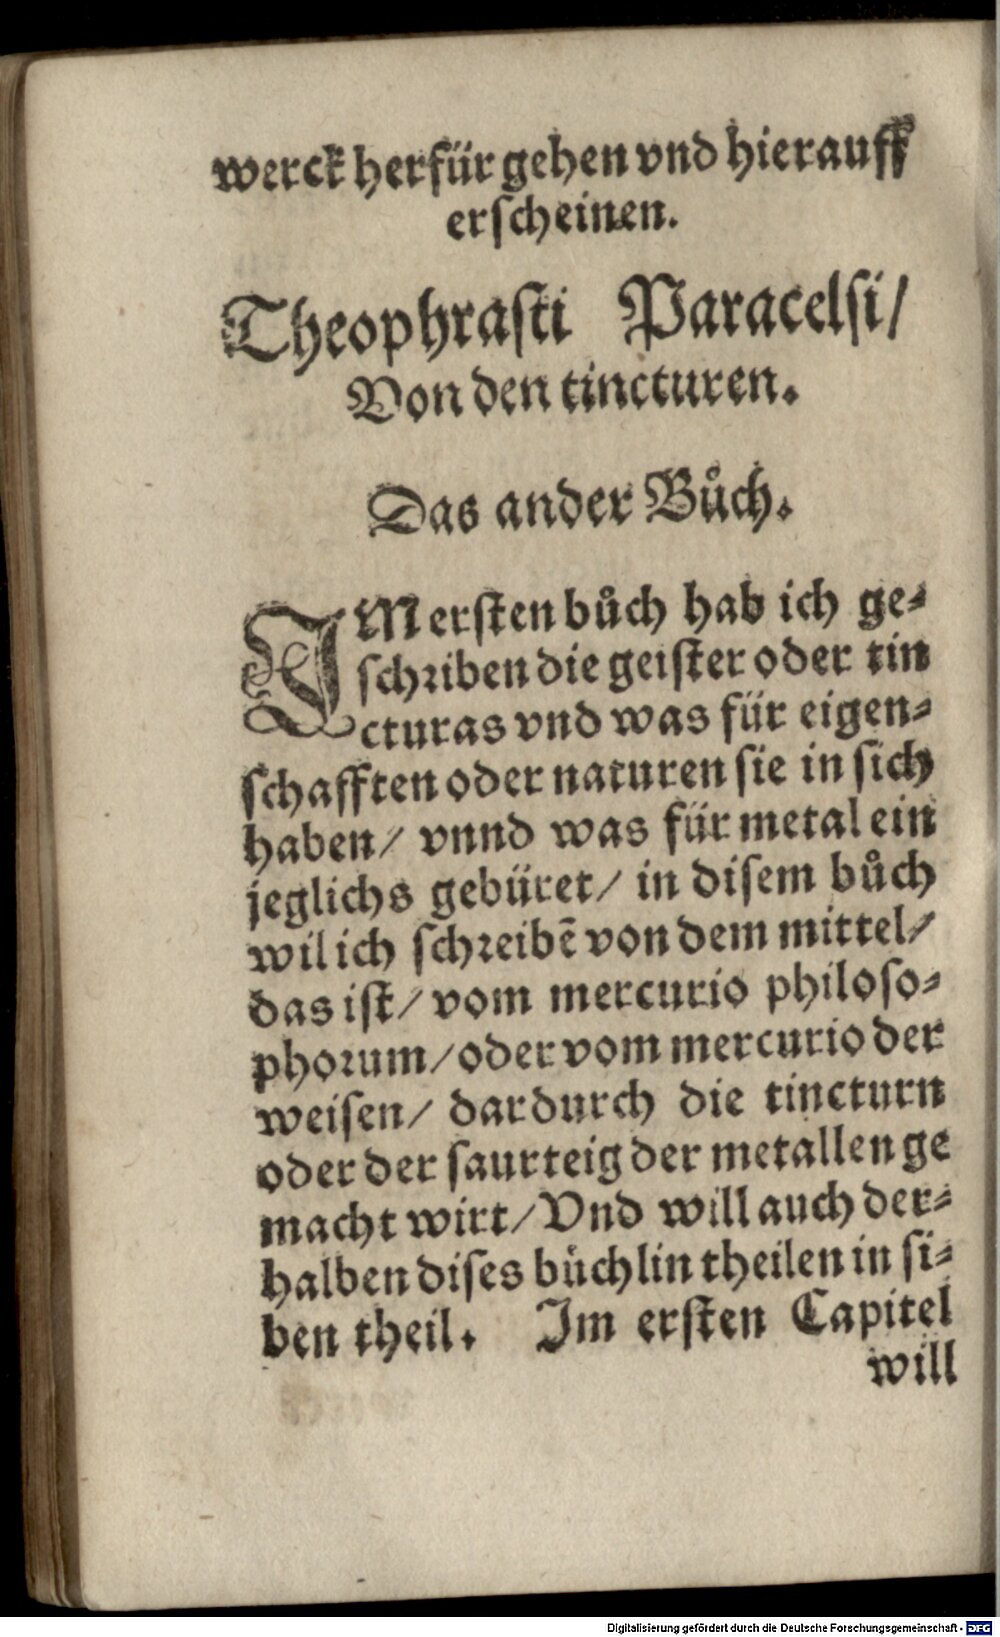 werck herfür gehen vnd hierauff
erscheinen.
Theophrasti Paracelsi/
Von den tincturen.
Das ander Bůch.
IM ersten bůch hab ich ge-
schriben die geister oder tin
cturas vnd was für eigen-
schafften oder naturen sie in sich
haben/ vnnd was für metal ein
jeglichs gebüret/ in disem bůch
wil ich schreibẽ von dem mittel/
das ist/ vom mercurio philoso-
phorum/ oder vom mercurio der
weisen/ dardurch die tincturn
oder der saurteig der metallen ge
macht wirt/ Vnd will auch der-
halben dises bůchlin theilen in si-
ben theil. Im ersten Capitel
will
Digitalisierung gefördert durch die Deutsche Forschungsgemeinschaft - DFG